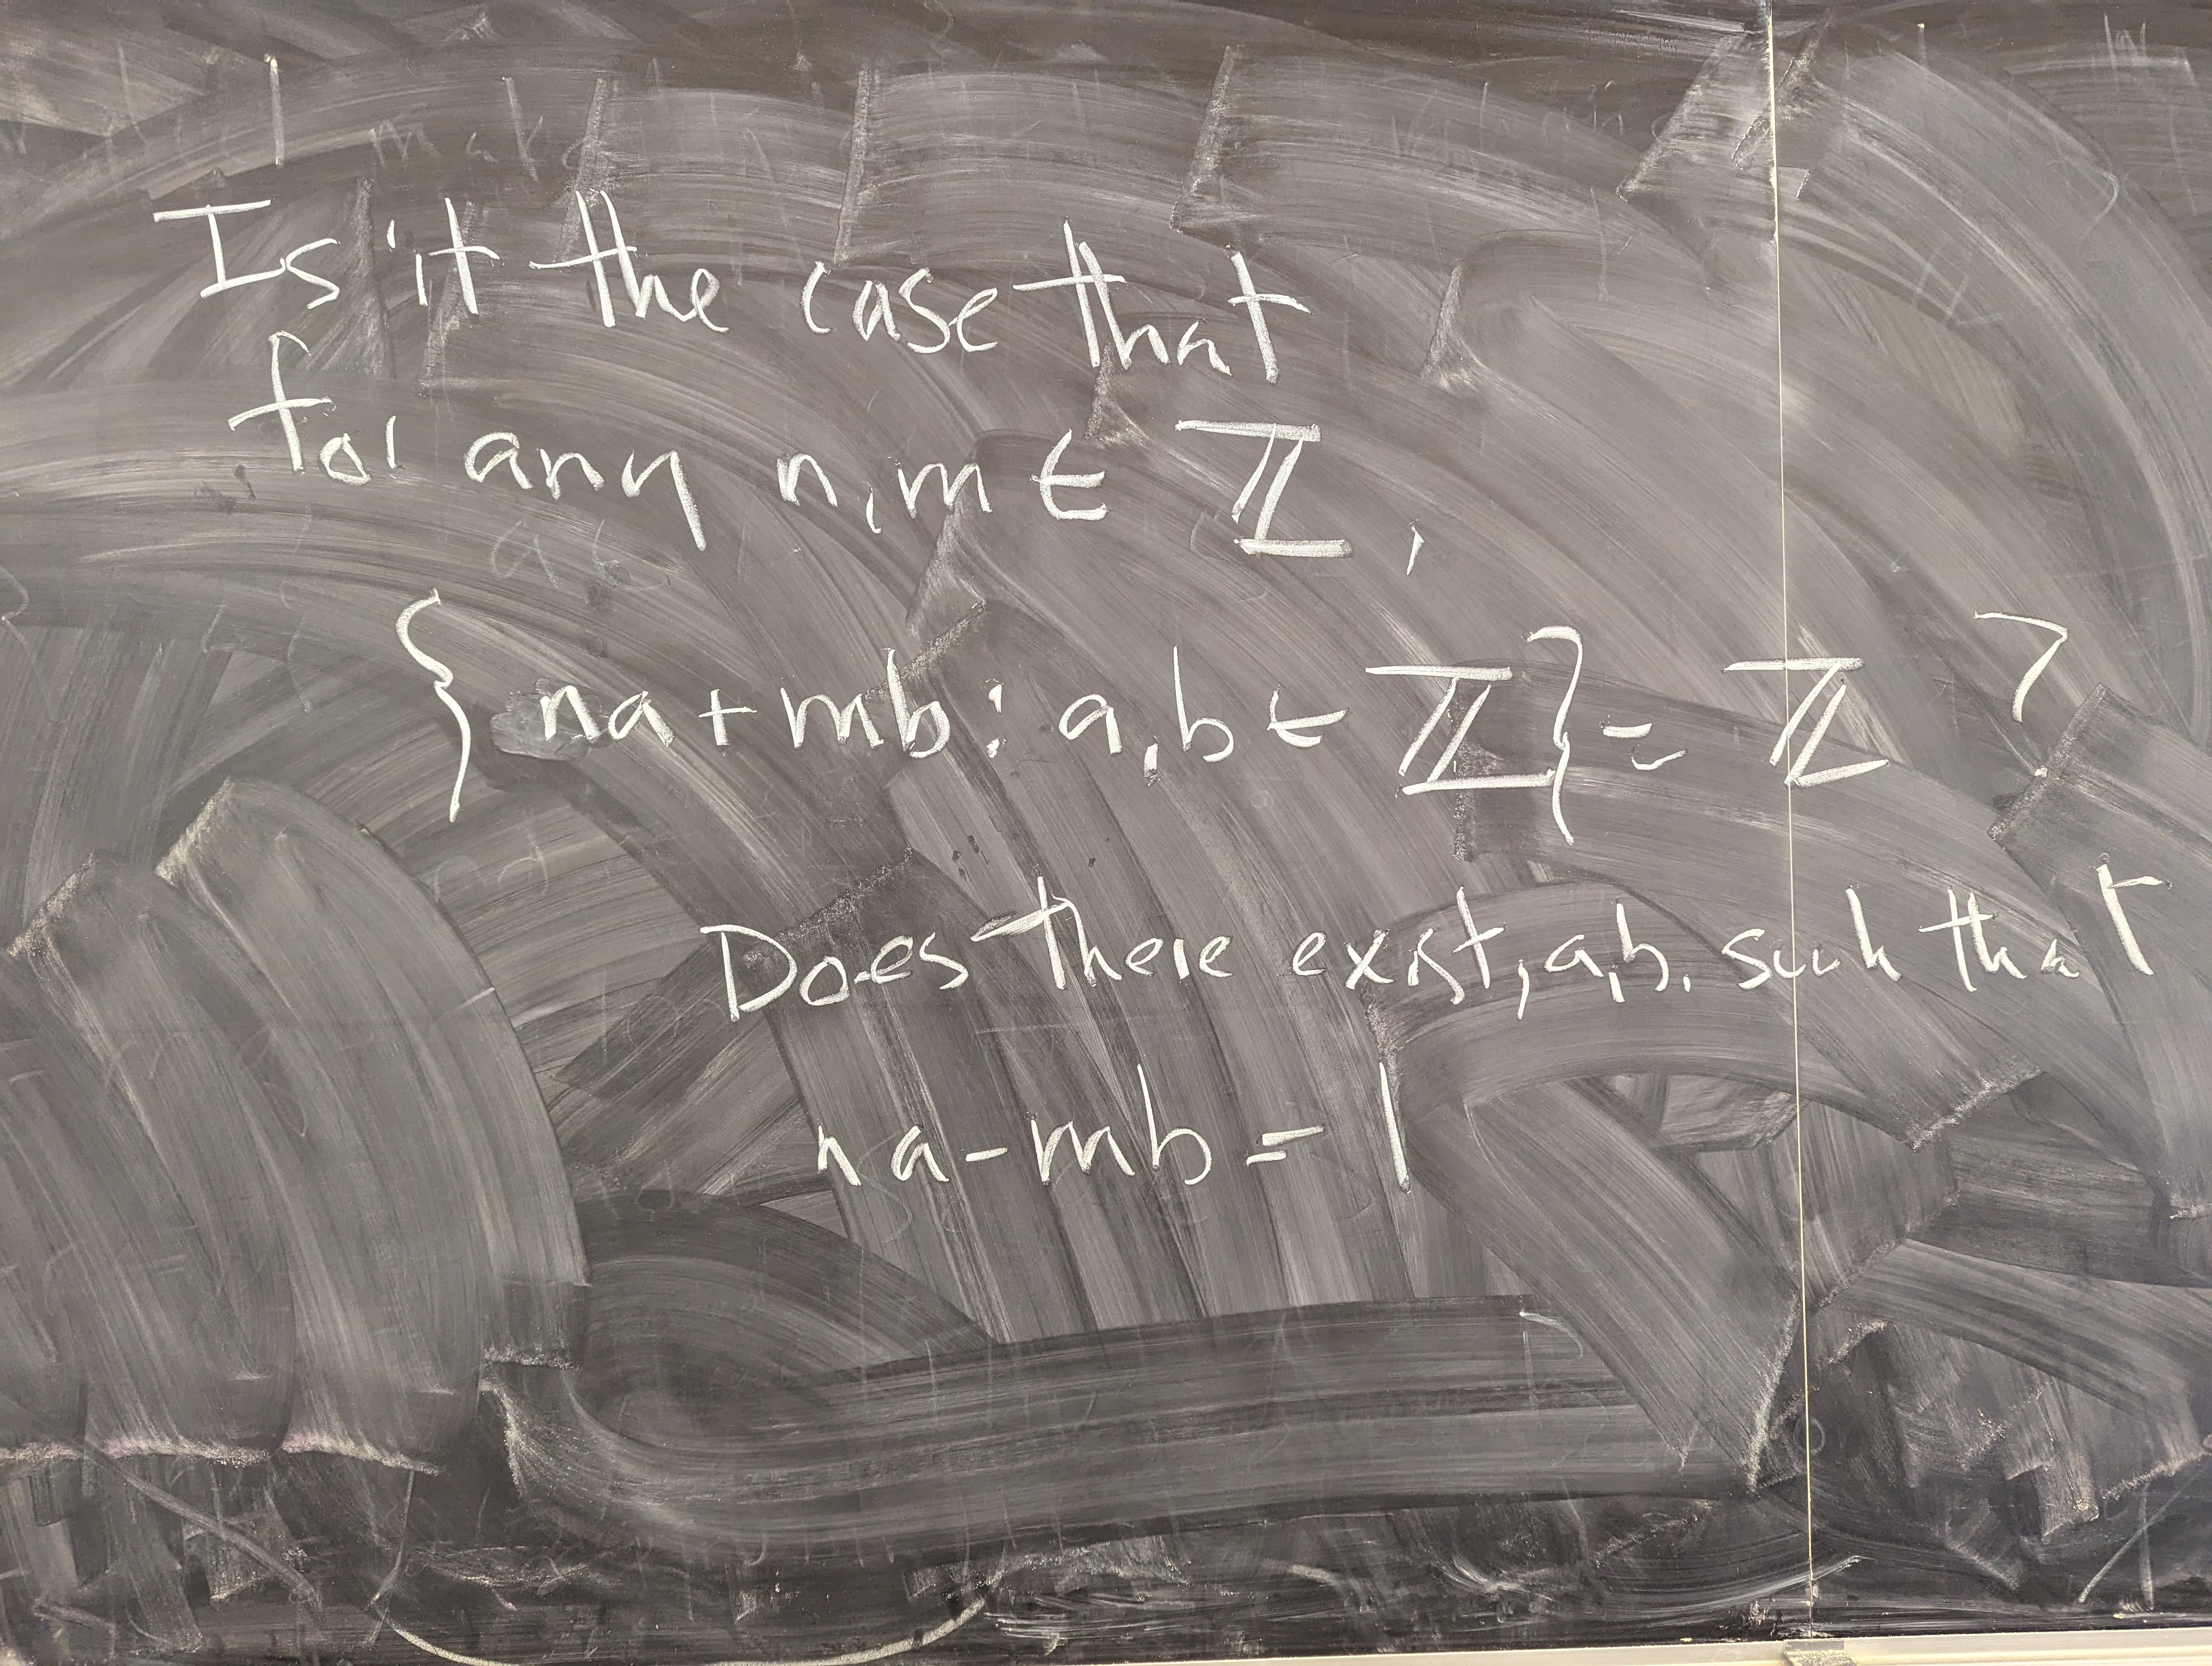 Is it the case that
for any n,m ∈ ℤ,
{na+mb: a,b ∈ ℤ} = ℤ ?
Does there exist, a,b, such that
na-mb=1